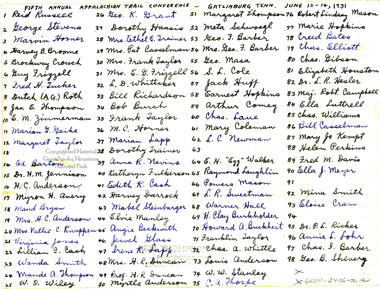 FIFTH ANNUAL APPALACHIAN TRAIL CONFERENCE - GATLINBURG TENN. JUNE 12-14, 1931
1 Reid Russell
2 George Stevens
3 Marvin Horner
4 Harvey B. Broome
5 Brockway Crouch
6 Guy Frizzell
7 Fred H. Tucker
8 Dutch (A.G.) Roth
9 Jas. E. Thompson
10 E. M. Zimmerman
11 Marian G.
12 Margaret Taylor
14 Ed. Barton
15 Dr. H. M. Jennison
H. C. Anderson
17 Myron H. Avery
18 Maud Bryan
Mrs. H. C. Anderson
20 Mrs. Nellie C. Knappen
21 Virginia Jones
22 Lillian C. Cash
23 Wanda Smith
24 Maude A. Thompson
25 W. D. Wales
26 Geo. K. Grant
27 Dorothy Hanco
28 Mrs Ethel S. Trainer
29 Mrs. Pat Casselman
30 Mrs. Frank Taylor
31 Mrs. G. Frizzell
32 L. D. Whittaker
33 Bill Richardson
34 Bob Burch
35 Frank Taylor
36 M. C. Horner
37 Marian Lapp
38 Dorothy Trainer
39 Anna R. Nering
40 Kathryn Fulkerson
41 Edith K. Cash
42 Harvey Darrock
43 Mabel Steinbarger
44 Elvie Manley
45 Angie Beckwith
46 Jewel Glass
47 Irene R. Lapp
48 Mrs. H. R. Duncan
49 Prof. H. R. Duncan
50 Myrtle Anderson
51 Margaret Thompson
52 Meta
53 Geo. F. Barber
54 Mrs. Geo. F. Barber
55 Geo. Masa
56 L. L. Cole
57 Jack Huff
58 Earnest Hopkins
59 Arthur Comey
60 Chas. Lane
61 Mary Coleman
62 L. C. Newman
64 E. H. "Egg" Walker
65 Raymond Laughlin
66 Powers Mason
67 L. R. Smetman
68 Warner Hall
69 H. Clay Burkholder
70 Howard A. Buckheit
71 Franklin Taylor
72 Chas. A. Whittle
73 Louis Anderson
74 W. W. Stanley
75 C. A. Thorpe
76 Robert Lindsay Mason
77 Marie Hopkins
78 Creed Bates
79 Chas. Elliott
80 Chas. Gibson
81 Elizabeth Houston
82 Dr. L. R. Hesler
83 Maj. Robt. Campbell
84 Ella Luttrell
85 Chas. Williams
86 Bill Casselman
87 Mary M. Kempt
88 Helen Perkins
89 Fred M. Davis
90 Ella J. Meyer
91
92 Mina Smith
93 Eloise Cram
94
95 Dr. P. L. Rickes
96 Annie L. Lohr
97 Chas. I. Barber
98 Geo. D. Shinerg
X
X